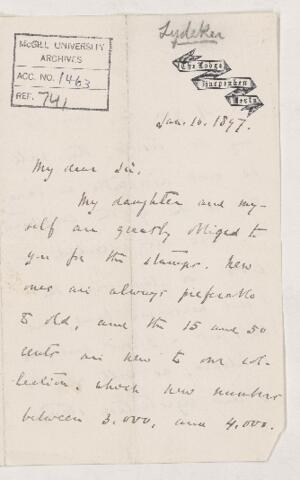 Lydekker
McGILL UNIVERSITY
ARCHIVES
ACC. NO. 1463
REF. 741
The Lodge
Harpenden
Herts
Jan. 10. 1897.
My dear Sir.
My daughter and my-
self are greatly obliged to
you for the stamps. New
ones are always preferable
to old, and the 15 and 50
cents are new to our col-
lection, which now numbers
between 3,000, and 4,000.